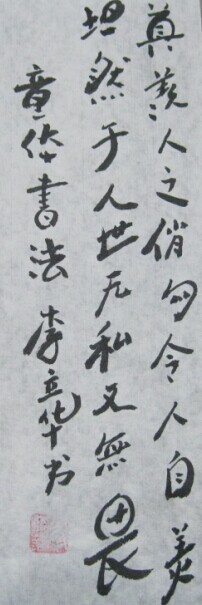 真羡人之俏白令人自美
坦然于人世无私又無畏
章华書法 李立华书